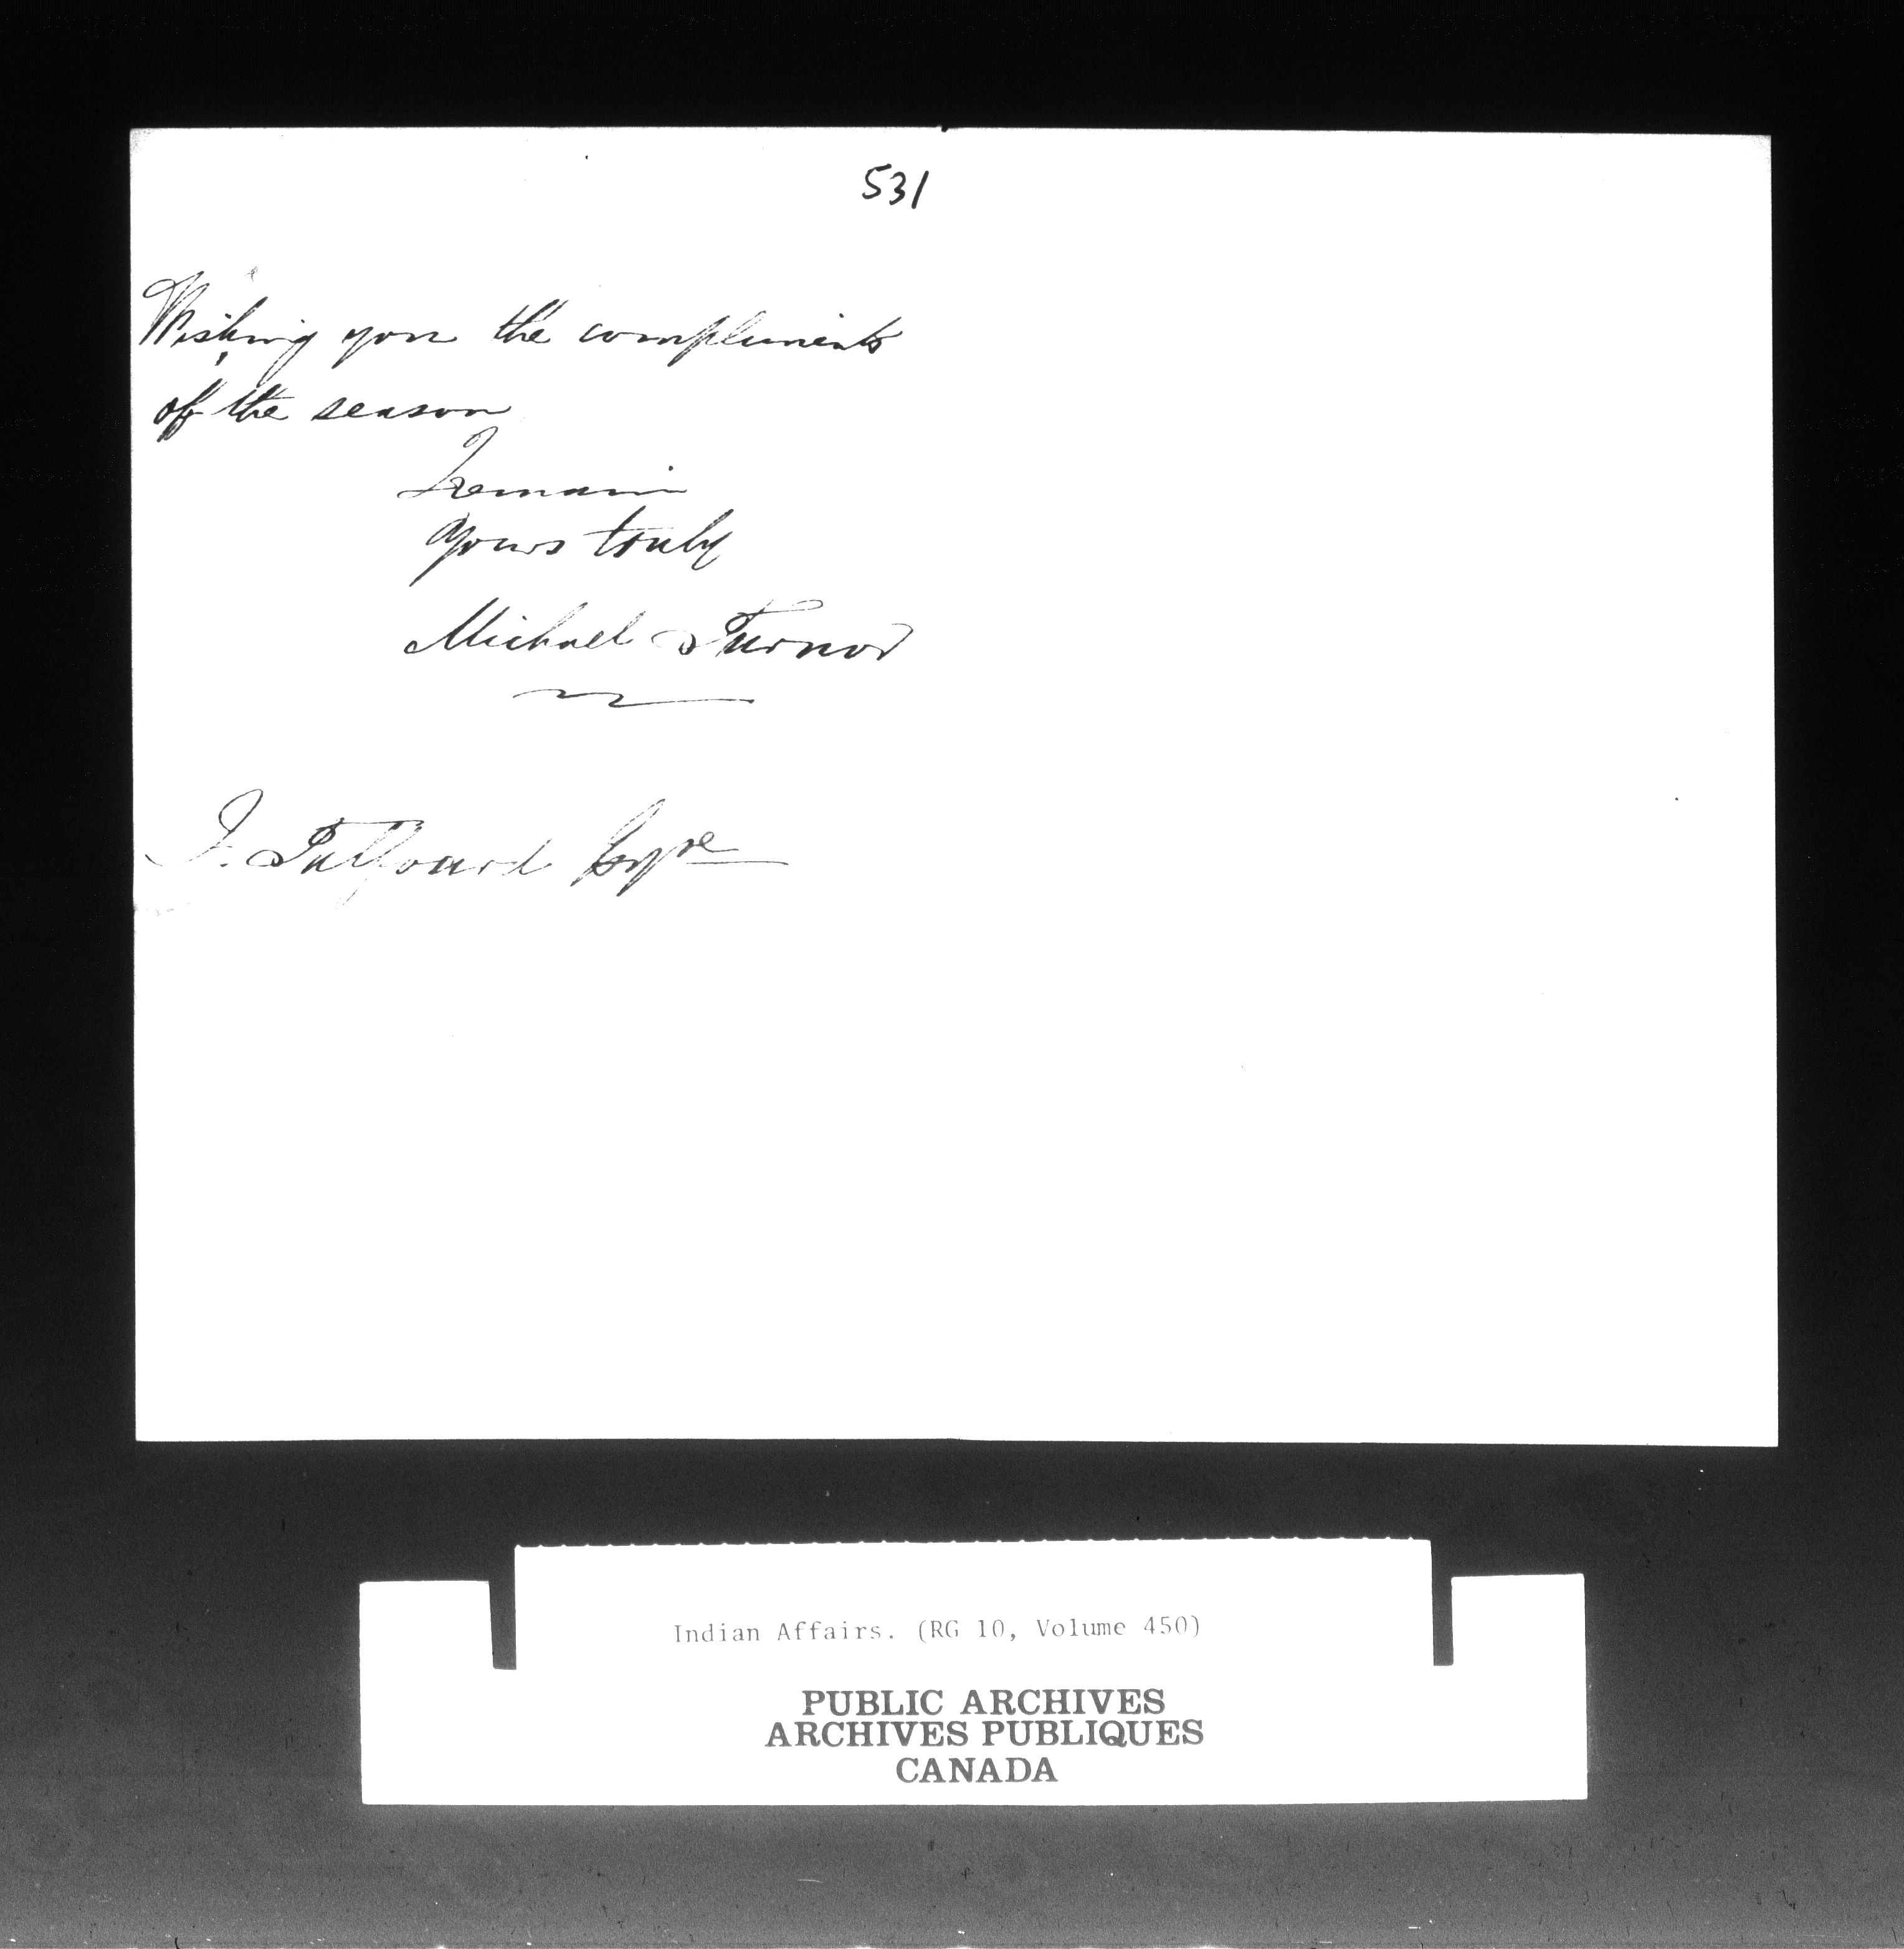 531
Wishing you the compliments
of the season
I remain
Yours truly
Michael Turnor
F. Talfourd Esqre
Indian Affairs. (RG 10, Volume 450)
PUBLIC ARCHIVES
ARCHIVES PUBLIQUES
CANADA